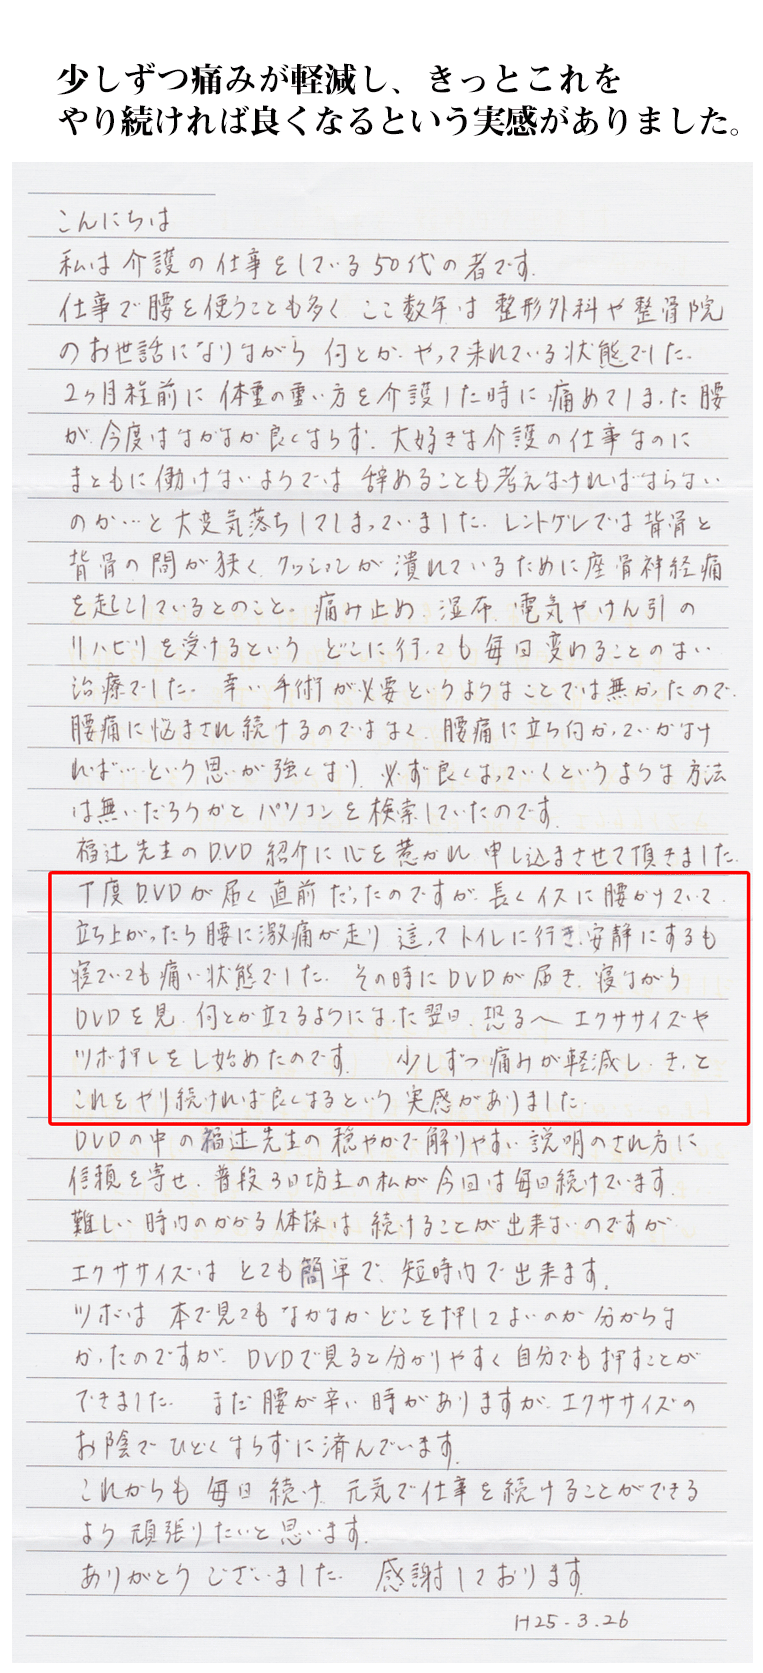 少しずつ痛みが軽減し、きっとこれを
やり続ければ良くなるという実感がありました。
こんにちは
私は介護の仕事をしている50代の者です。
仕事で腰を使うことも多く ここ数年は 整形外科や整骨院
のお世話になりながら 何とか、やって来れている状態でした。
2ヶ月程前に 体重の重い方を介護した時に痛めてしまった腰
が、今度はなかなか良くならず、大好きな介護の仕事なのに
まともに働けないようでは 辞めることも考えなければならない
のか…と大変気落ちしてしまっていました。レントゲンでは背骨と
背骨の間が狭く、クッションが潰れているために座骨神経痛
を起こしているとのこと。痛み止め、湿布、電気やけん引の
リハビリを受けるという どこに行っても毎回変わることのない
治療でした。幸い手術が必要というようなことでは無かったので、
腰痛に悩まされ続けるのではなく、腰痛に立ち向かっていかなけ
れば…という思いが強くなり、必ず良くなっていくというような方法
は無いだろうかとパソコンを検索していたのです。
福辻先生のDVD紹介に心を惹かれ 申し込まさせて頂きました。
丁度DVDが届く直前だったのですが、長くイスに腰かけていて、
立ち上がったら腰に激痛が走り 這ってトイレに行き、安静にするも
寝ていても痛い状態でした。その時にDVDが届き、寝ながら
DVDを見、何とか立てるようになった翌日、恐る〱エクササイズや
ツボ押しをし始めたのです。 少しずつ痛みが軽減し、きっと
これをやり続ければ良くなるという実感がありました。
DVDの中の福辻先生の穏やかで解りやすい説明のされ方に
信頼を寄せ、普段3日坊主の私が今回は毎日続けています。
難しい時間のかかる体操は続けることが出来ないのですが
エクササイズはとても簡単で、短時間で出来ます。
ツボは 本で見てもなかなかどこを押してよいのか分からな
かったのですが、DVDで見ると分かりやすく自分でも押すことが
できました。 まだ腰が辛い時がありますが、エクササイズの
お陰でひどくならずに済んでいます。
これからも毎日続け、元気で仕事を続けることができる
よう頑張りたいと思います。
ありがとうございました。 感謝しております。
H25.3.26